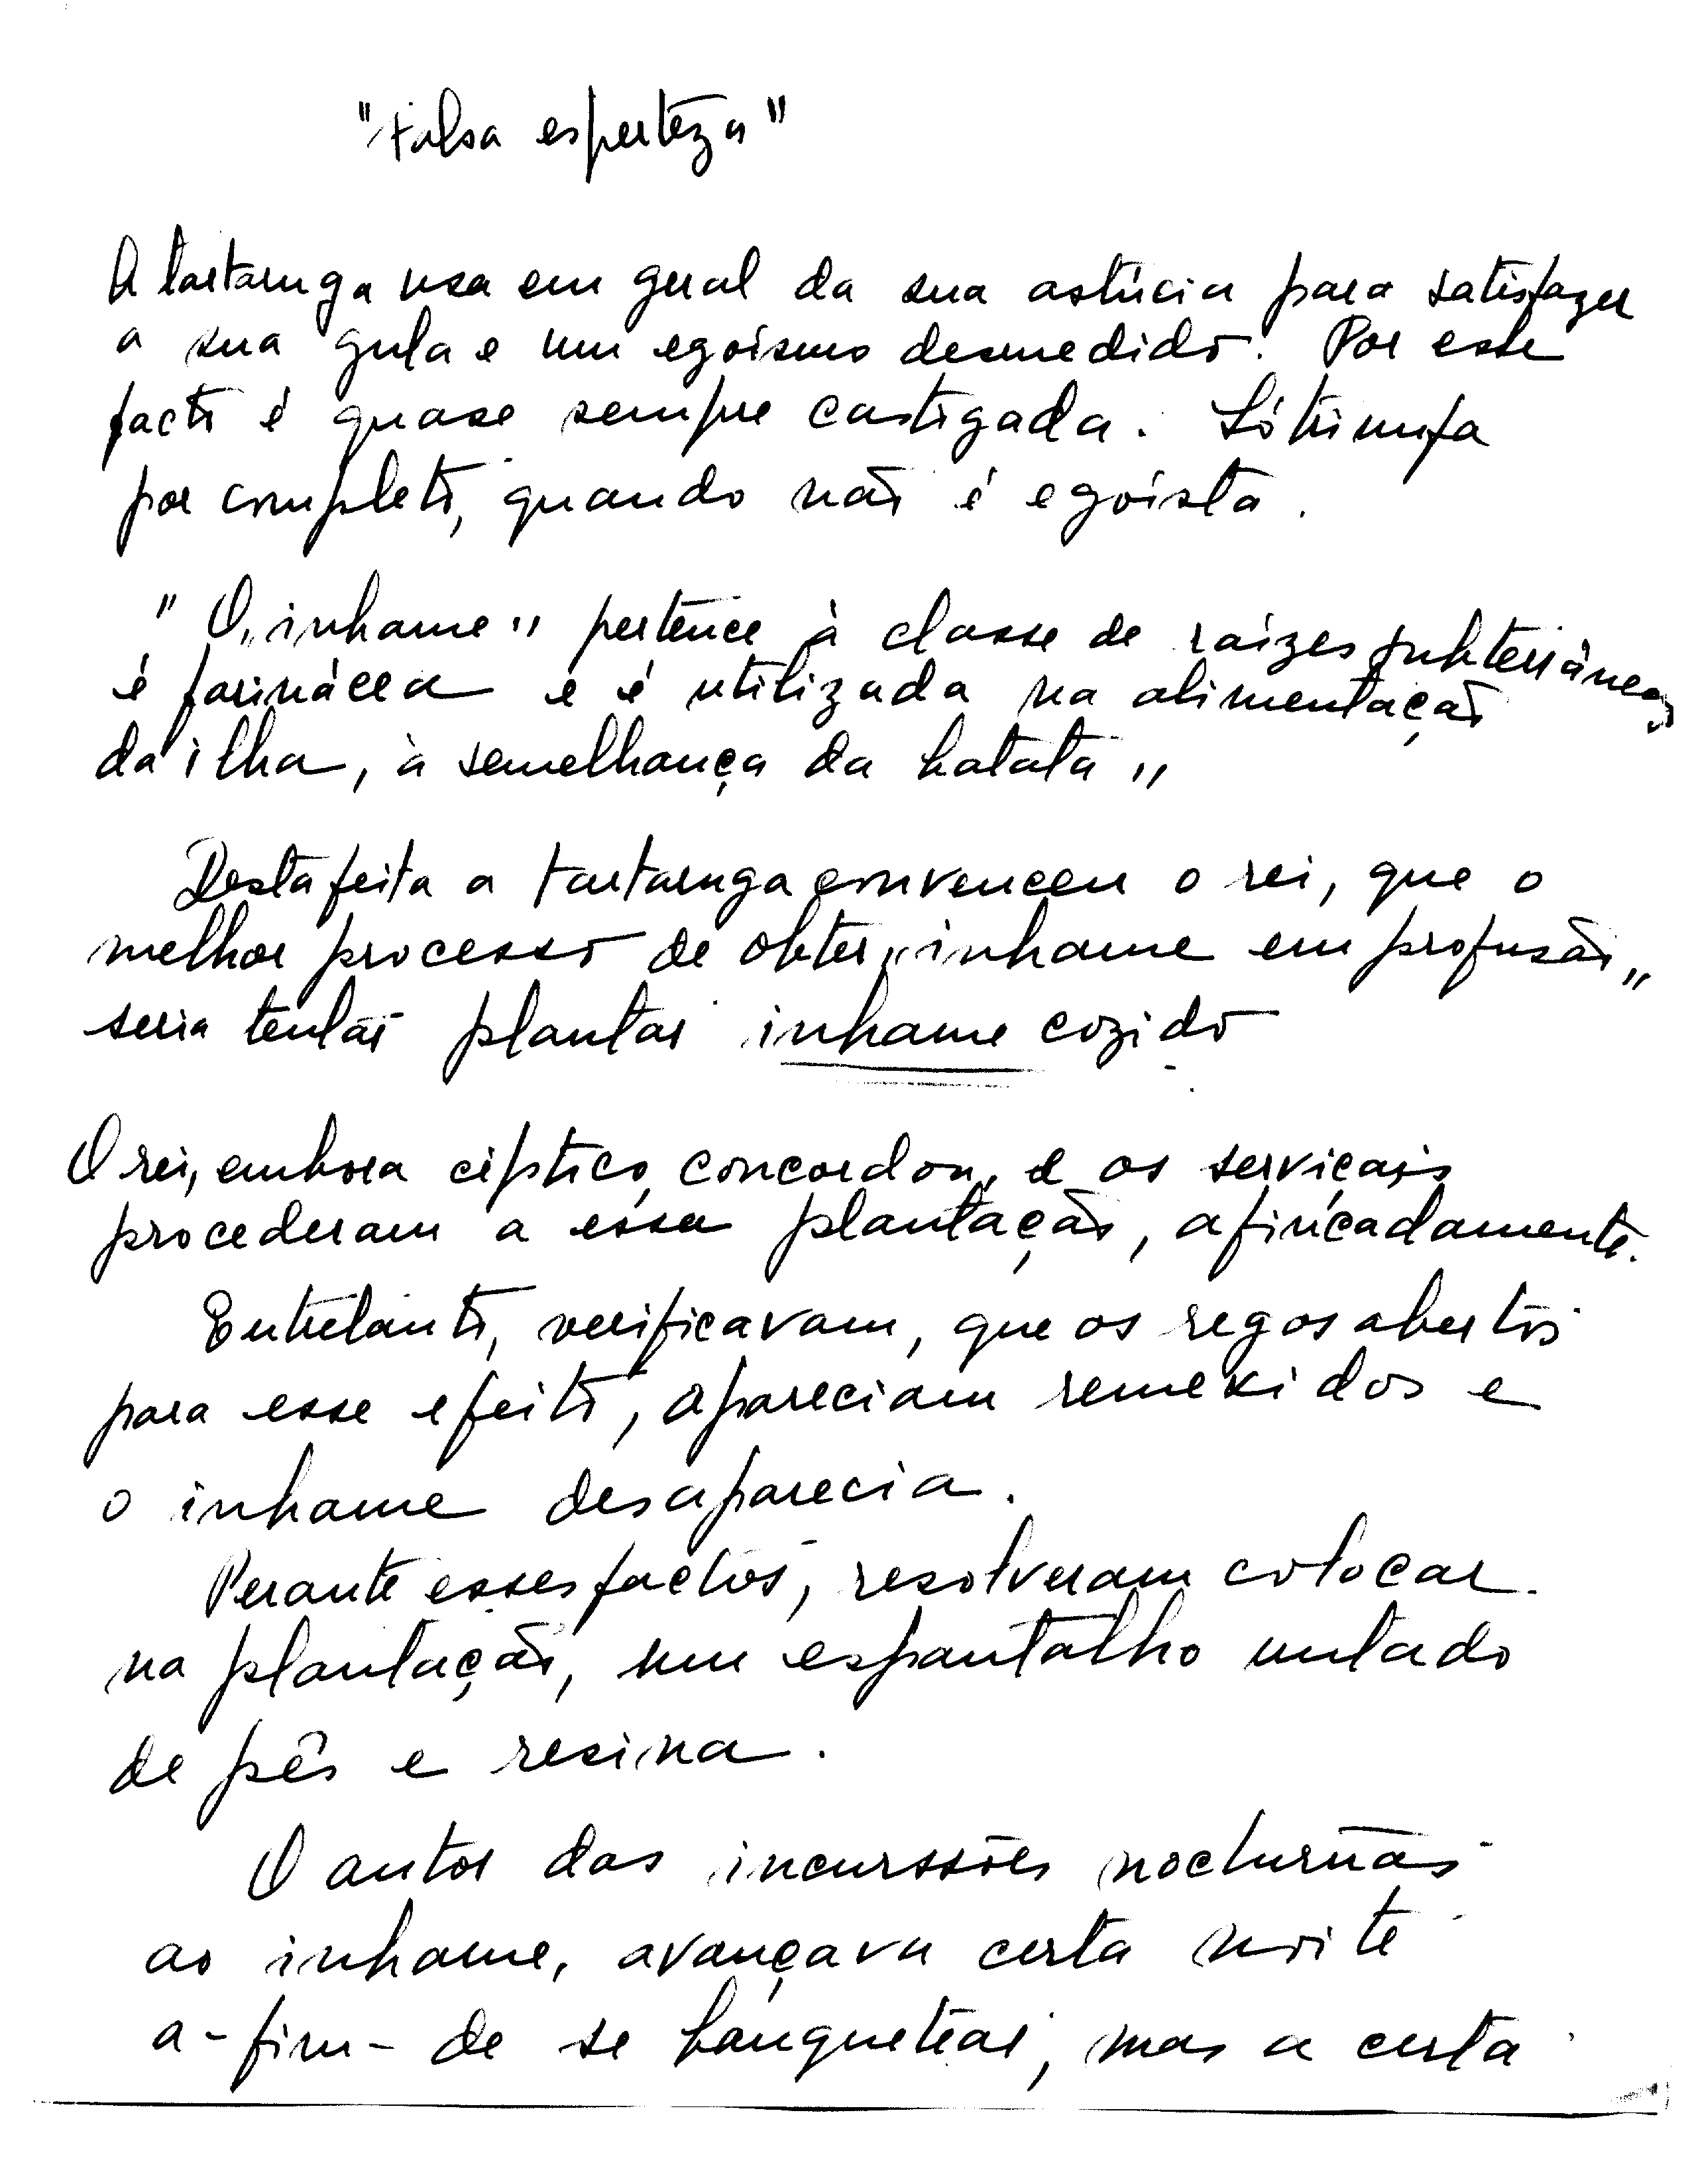 "Falsa esperteza"
A tartaruga usa em geral da sua astúcia para satisfazer
a sua gula e um egoísmo desmedido. Por este
facto é quase sempre castigada. Só triunfa
por completo, quando não é egoísta.
"O "inhame" pertence à classe de raízes subterrâneas
é farinácea e é utilizada na alimentação
da ilha, à semelhança da batata"
Desta feita a tartaruga convenceu o rei, que o
melhor processo de obter "inhame em profusão"
seria tentar plantar inhame cozido
O rei, embora céptico, concordou, e os serviçais
procederam a essa plantação, afincadamente.
Entretanto, verificavam, que os regos abertos
para esse efeito, apareciam remexidos e
o inhame desaparecia.
Perante esses factos, resolveram colocar
na plantação, um espantalho untado
de pês e resina.
O autor das incurssões nocturnas
ao inhame, avançava certa noite
a-fim-de se banquetear, mas a certa